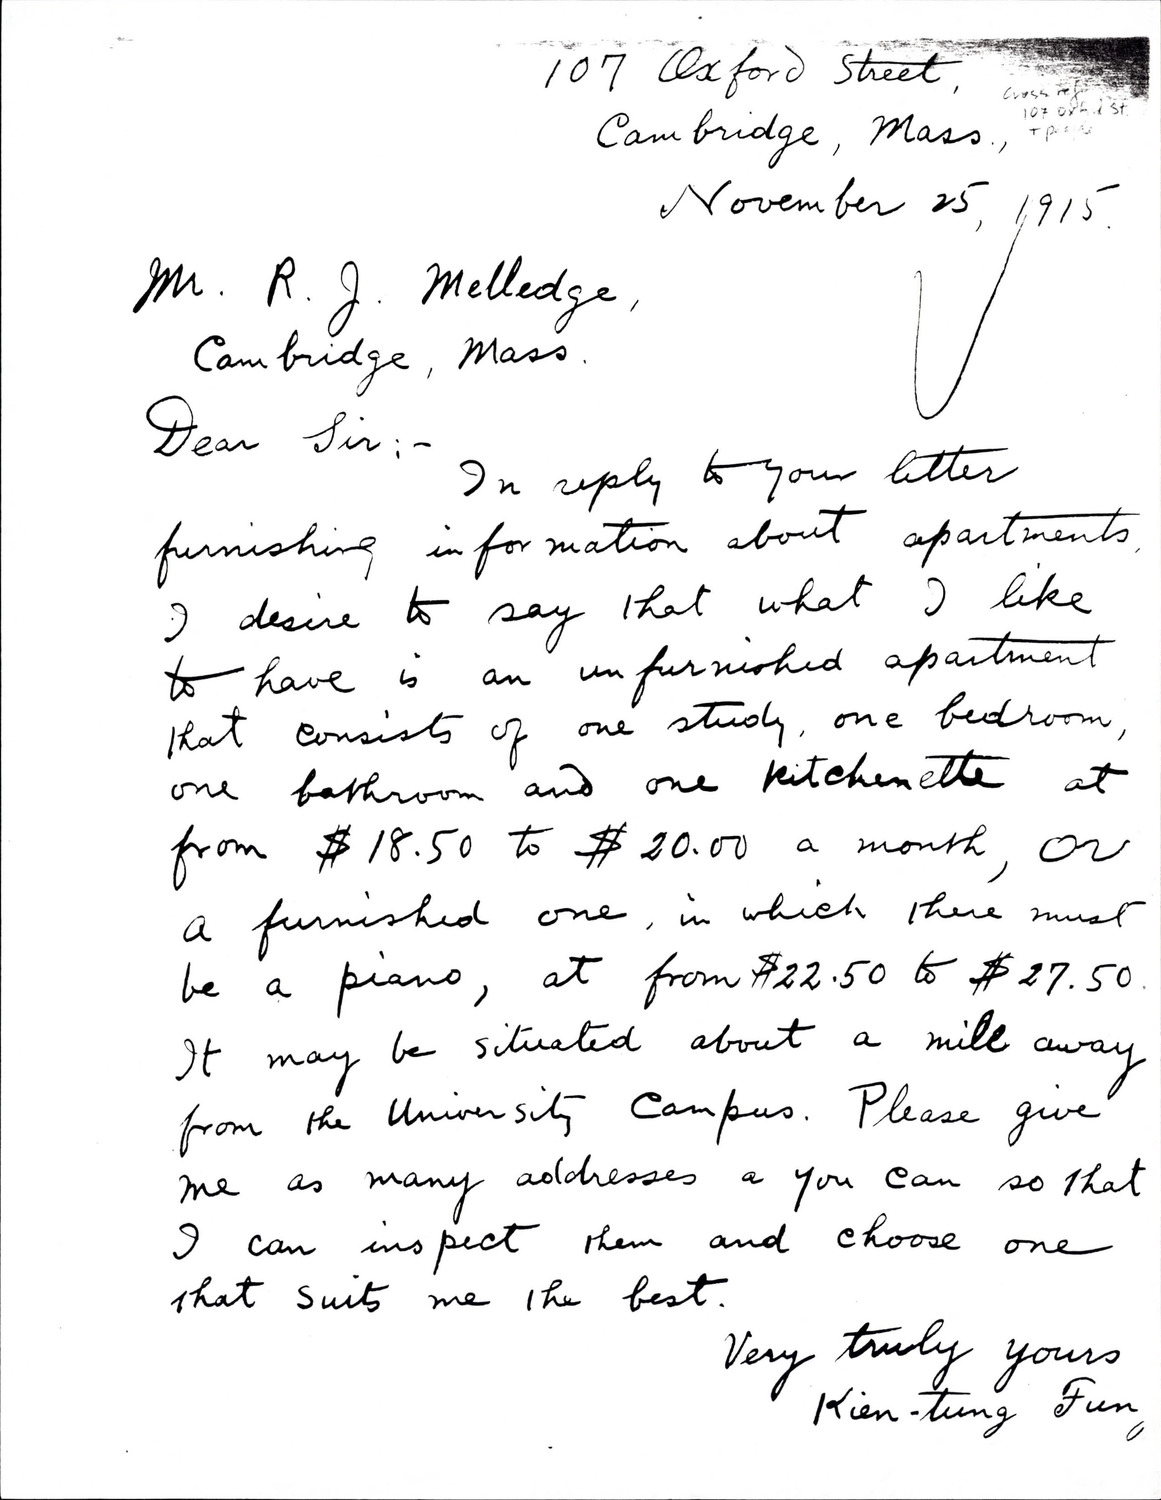 107 Oxford Street,
Cross ref
107 Oxford St.
Cambridge, Mass.,
November 25, 1915.
Mr. R. J. Melledge,
Cambridge, Mass.
Dear Sir:-
In reply to your letter
furnishing information about apartments,
I desire to say that what I like
to have is an unfurnished apartment
that consists of one study, one bedroom,
one bathroom and one kitchenette at
from $18.50 to $20.00 a month, or
a furnished one, in which there must
be a piano, at from $22.50 to $27.50.
It may be situated about a mile away
from the University Campus. Please give
me as many addresses a you can so that
I can inspect them and choose one
that suits me the best.
Very truly yours
Kien-tung Fung